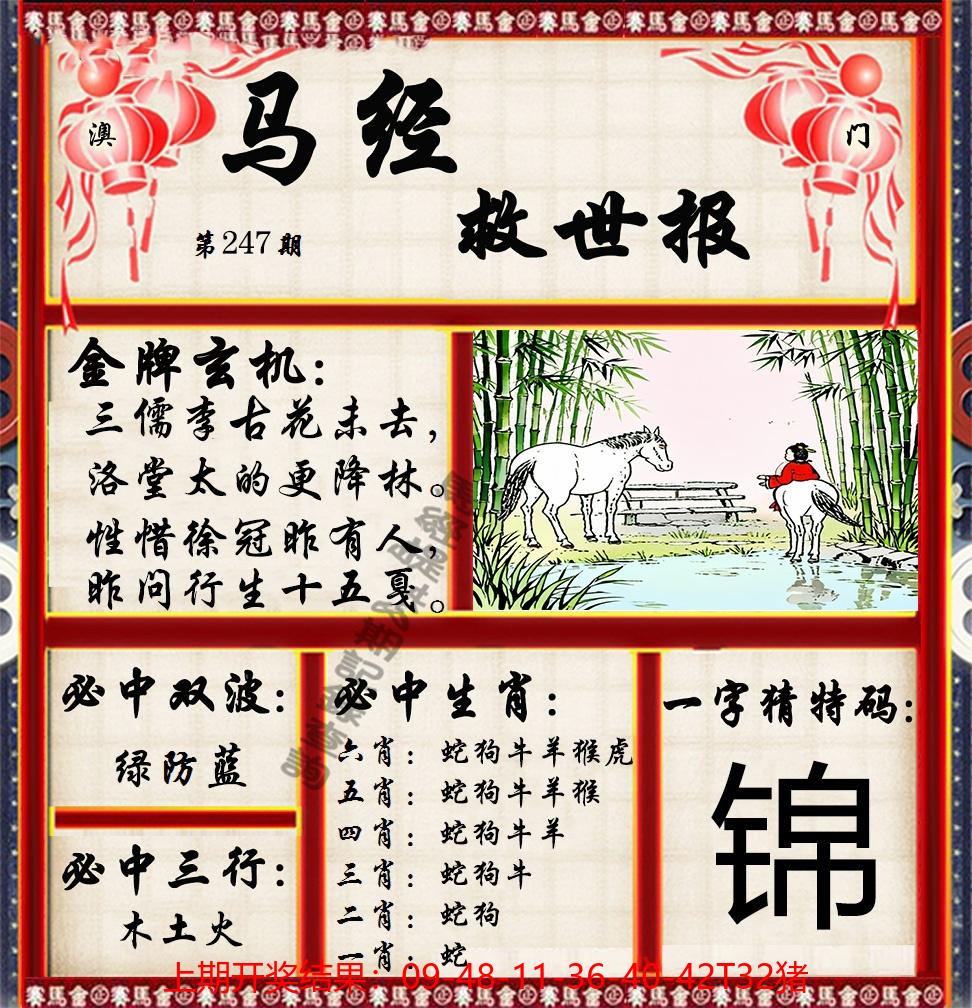 澳
门
马经
救世报
第247期
金牌玄机：
三儒李古花未去，
洛堂太的更降林。
性惜徐冠昨有人，
昨问行生十五戛。
必中双波：
绿防蓝
必中三行：
木土火
必中生肖：
六肖：蛇狗牛羊猴虎
五肖：蛇狗牛羊猴
四肖：蛇狗牛羊
三肖：蛇狗牛
二肖：蛇狗
一肖：蛇
一字猜特码：
锦
上期开奖结果：09-48-11-36-40-42T32猪